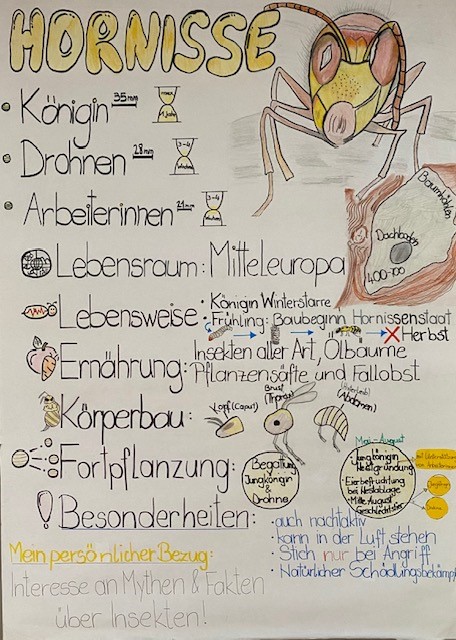 HORNISSE
Königin 35mm max 1 Jahr
Drohnen 28mm 3-4 Wochen
Arbeiterinnen 21mm 3-4 Wochen
Baumhöhlen
Dachboden
400-700
Lebensraum: Mitteleuropa
Lebensweise
· Königin Winterstarre
· Frühling: Baubeginn Hornissenstaat
Herbst
Ernährung: Insekten aller Art, Ölbäume
Pflanzensäfte und Fallobst
Körperbau:
Kopf (Caput)
Brust (Thorax)
(Abdomen)
Fortpflanzung:
Begattung
Jungkönigin
Drohne
Mai - August
· Jungkönigin
Nestgründung
· Eierbefruchtung
bei Nestablage
· Mitte August
Geschlechtstier
Drohne
Besonderheiten:
· auch nachtaktiv
· kann in der Luft stehen
· Stich nur bei Angriff
· Natürlicher Schädlingsbekämpf
Mein persönlicher Bezug:
Interesse an Mythen & Fakten
über Insekten!